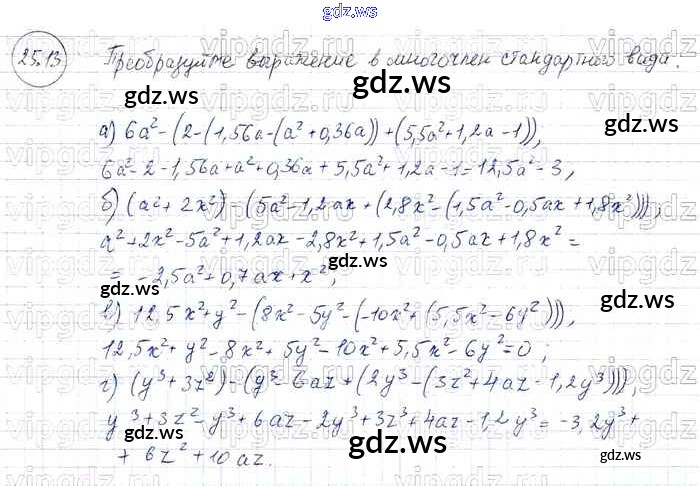 gdz.ws
25.13 Преобразуйте выражение в многочлен стандартного вида.
gdz.ws
gdz.ws
а) 6a²-(2-(1,56a-(a²+0,36a))+(5,5a²+1,2a-1)),
6a²-2-1,56a+a²+0,36a+5,5a²+1,2a-1=12,5a²-3,
gdz.ws
gdz.ws
б) (a²+2x²)-(5a²-1,2ax+(2,8x²-(1,5a²-0,5ax+1,8x²))),
a²+2x²-5a²+1,2ax-2,8x²+1,5a²-0,5ax+1,8x²=
= -2,5a²+0,7ax+x²,
gdz.ws
gdz.ws
в) 12,5x²+y²-(8x²-5y²-(-10x²+(5,5x²-6y²))),
12,5x²+y²-8x²+5y²-10x²+5,5x²-6y²=0;
г) (y³+3z²)-(y³-6az+(2y³-(3z²+4az-1,2y³))),
y³+3z²-y³+6az-2y³+3z²+4az-1,2y³=-3,2y³+
gdz.ws
gdz.ws
+6z²+10az.
gdz.ws